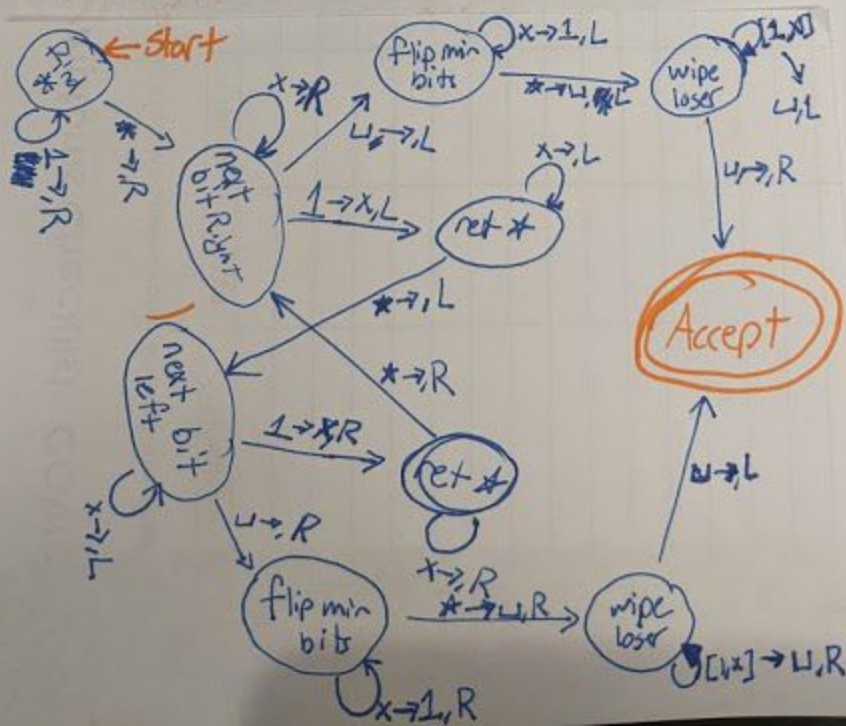 find
*
← Start
1→,R
*→,R
x→,R
next
bit Right
⊔→,L
flip min
bits
x→1,L
wipe
loser
[1,x]
↓
⊔,L
⊔→,R
1→x,L
ret *
x→,L
*→,L
*→,R
Accept
next bit
left
x→,L
1→x,R
ret *
x→,R
*→⊔,R
⊔→,R
flip min
bits
x→1,R
wipe
loser
[1,x]→⊔,R
⊔→,L